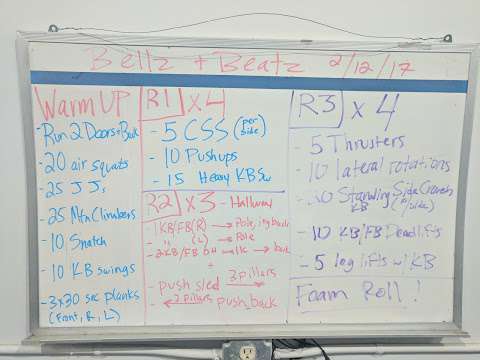 Bellz + Beatz 2/12/17
Warm UP
- Run 2 Doors + Back
- 20 air squats
- 25 JJs
- 25 Mtn Climbers
- 10 Snatch
- 10 KB swings
- 3x30 sec planks
(front, R, L)
R1 x 4
- 5 CSS (per side)
- 10 Pushups
- 15 Heavy KB Sw
R2 x 3 - Hallway
- 1 KB/FB (R) → Pole, jog back
- " (L) → Pole
- 2 KB/FB OH → back
+
- push sled 3 pillars
- 2 pillars push back
R3 x 4
- 5 Thrusters
- 10 lateral rotations
- Standing Side Crunch
KB (p/side)
- 10 KB/FB Deadlifts
- 5 leg lifts w/ KB
Foam Roll!